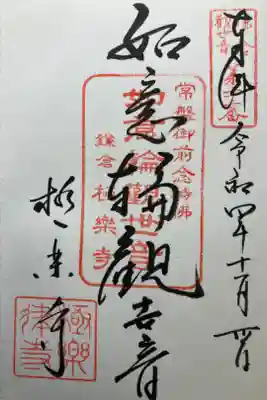 奉拝 令和四年十一月
如意輪觀世音
極楽寺
常盤御前念持佛
如意輪觀世音
鎌倉 極樂寺
極樂律寺